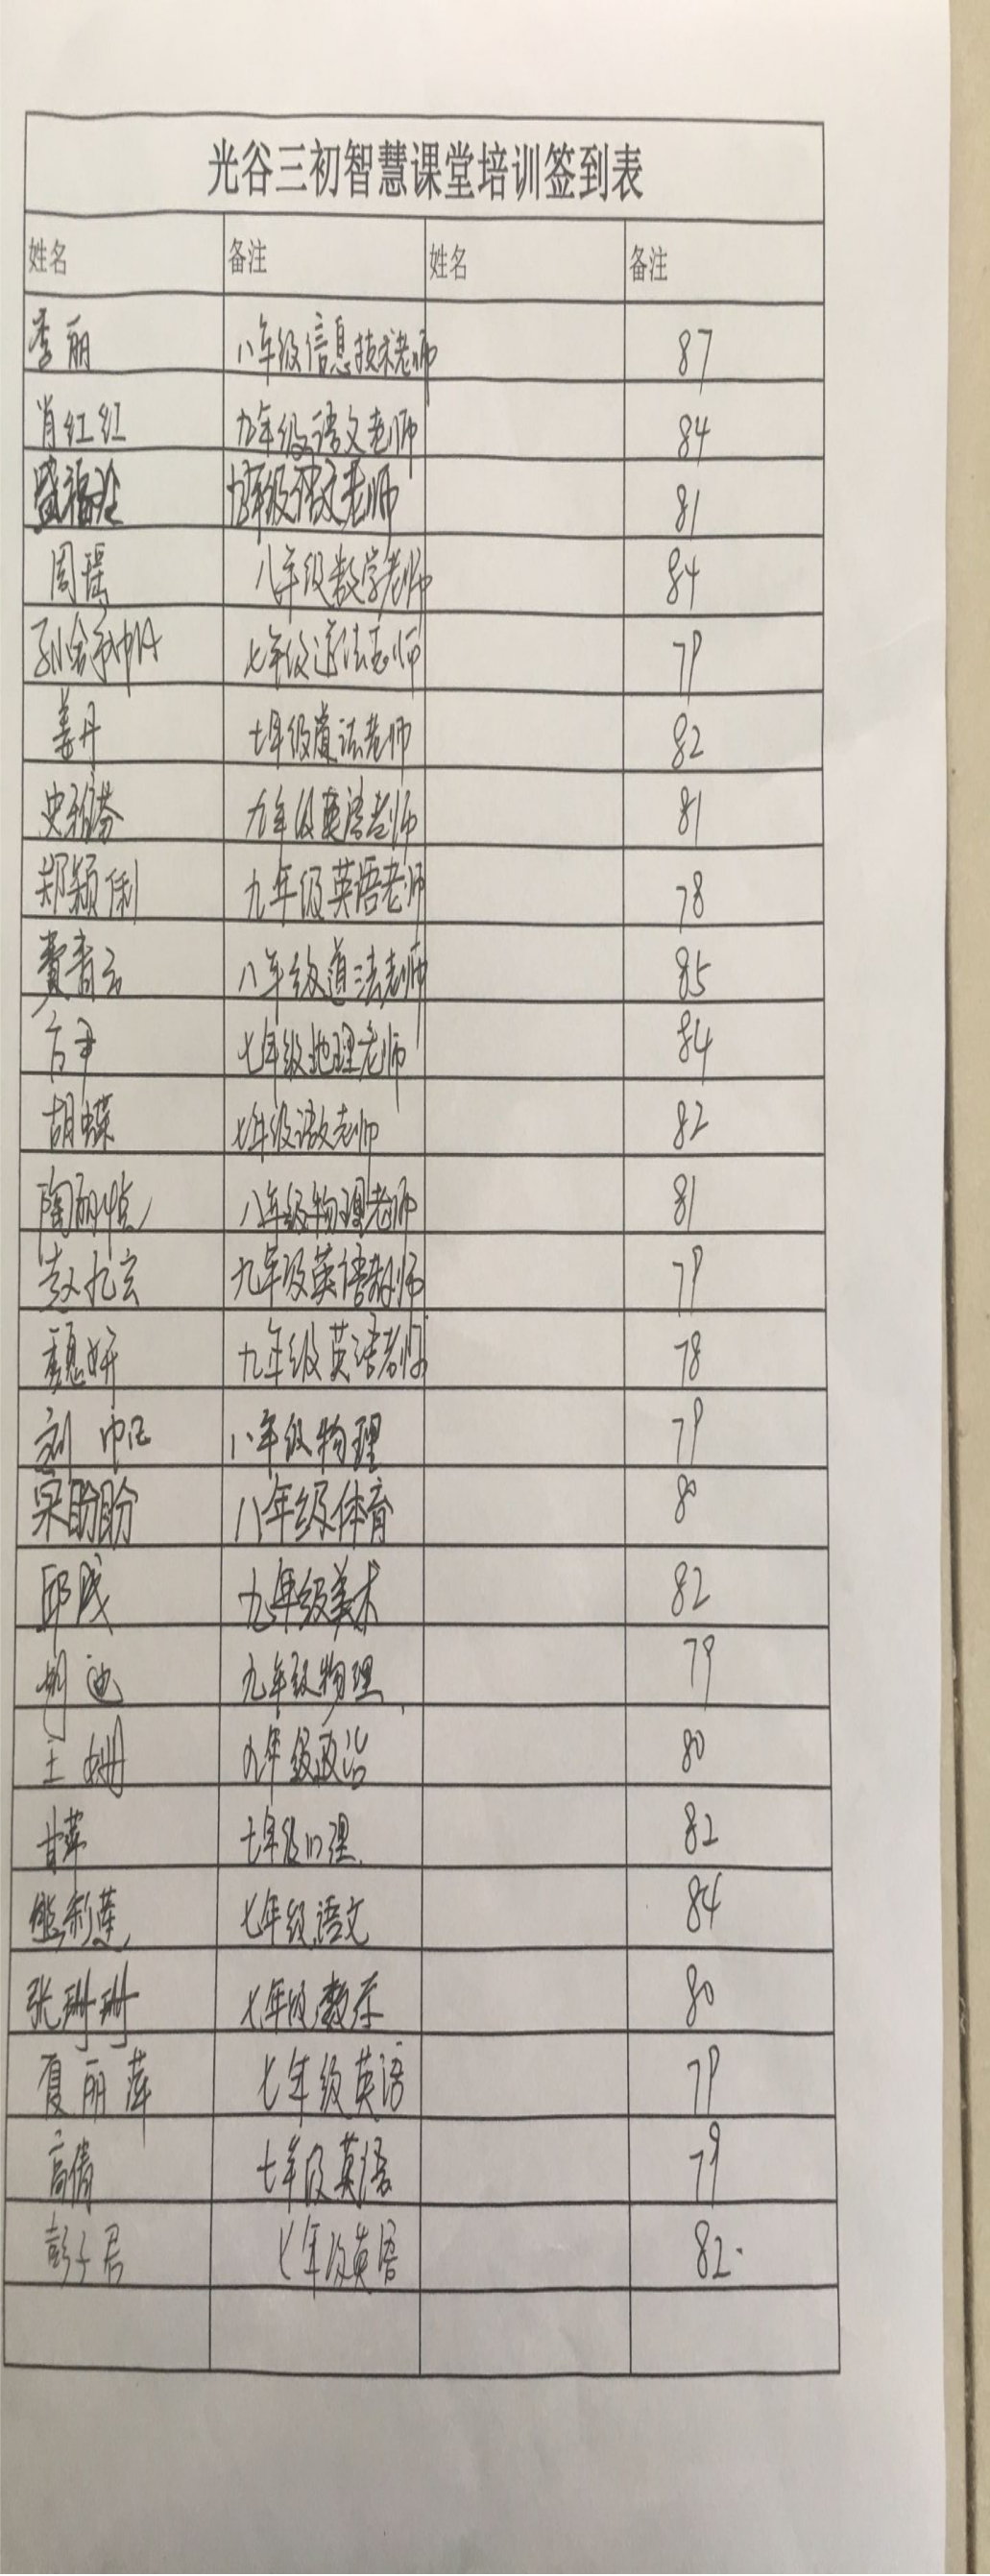 光谷三初智慧课堂培训签到表
姓名 备注 姓名 备注
李丽 八年级信息技术老师 87
肖红红 九年级语文老师 84
盛福 九年级语文老师 81
周瑶 八年级数学老师 84
七年级道法老师 79
姜丹 七年级道法老师 82
史雅芬 九年级英语老师 81
郑颖俐 九年级英语老师 78
费青云 八年级道法老师 85
七年级地理老师 84
胡蝶 七年级语文老师 82
陶丽 八年级物理老师 81
赵九玄 九年级英语教师 79
魏妍 九年级英语老师 78
刘 八年级物理 79
盼盼 八年级体育 80
邱成 九年级美术 82
胡迪 九年级物理 79
王姗 九年级政治 80
甘苹 七年级心理 82
熊彩莲 七年级语文 84
张珊珊 七年级数学 80
夏丽萍 七年级英语 79
高倩 七年级英语 79
彭子君 七年级英语 82